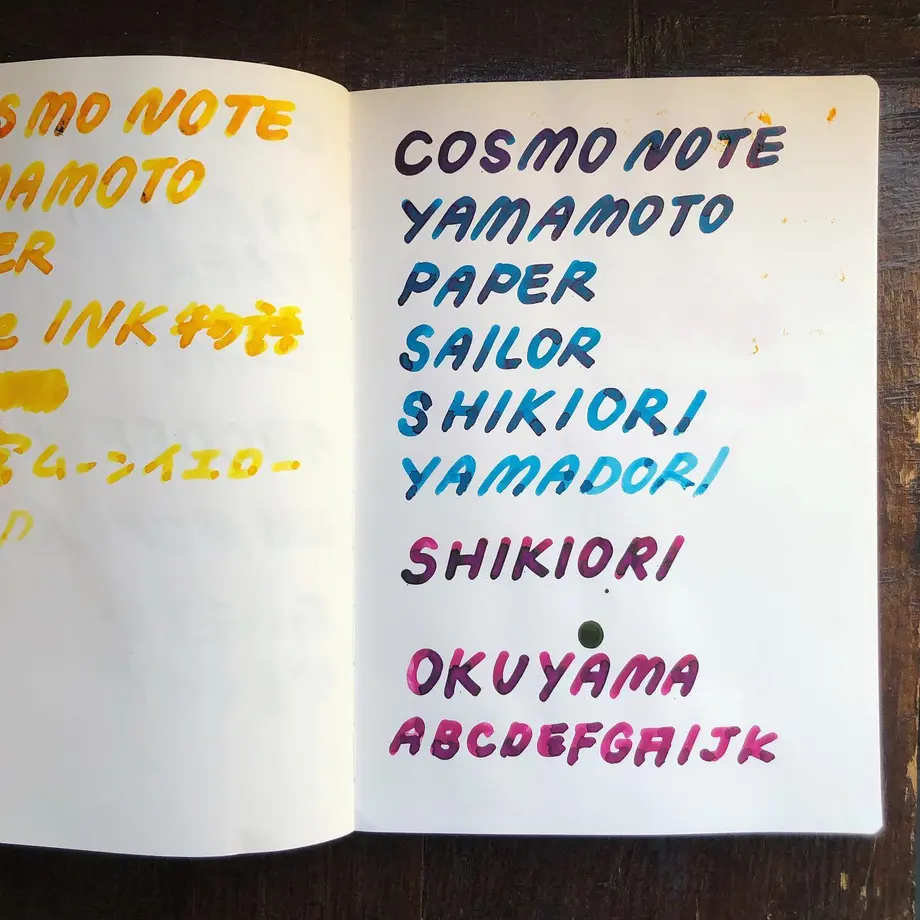 SMO NOTE
MAMOTO
ER
e INK 物語
ムーンイエロー
COSMO NOTE
YAMAMOTO
PAPER
SAILOR
SHIKIORI
YAMADORI
SHIKIORI
OKUYAMA
ABCDEFGHIJK